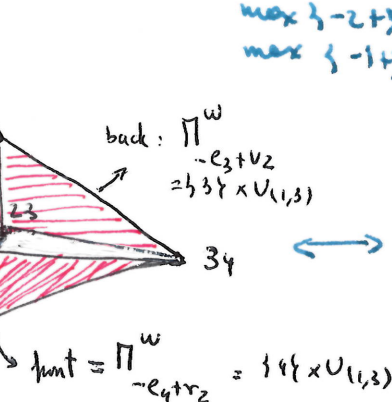 max { -2+
max { -1+
back : Π^w_{-e_3+v_2}
= {3} × U_(1,3)
23
34
front = Π^w_{-e_4+v_2} = {4} × U_(1,3)